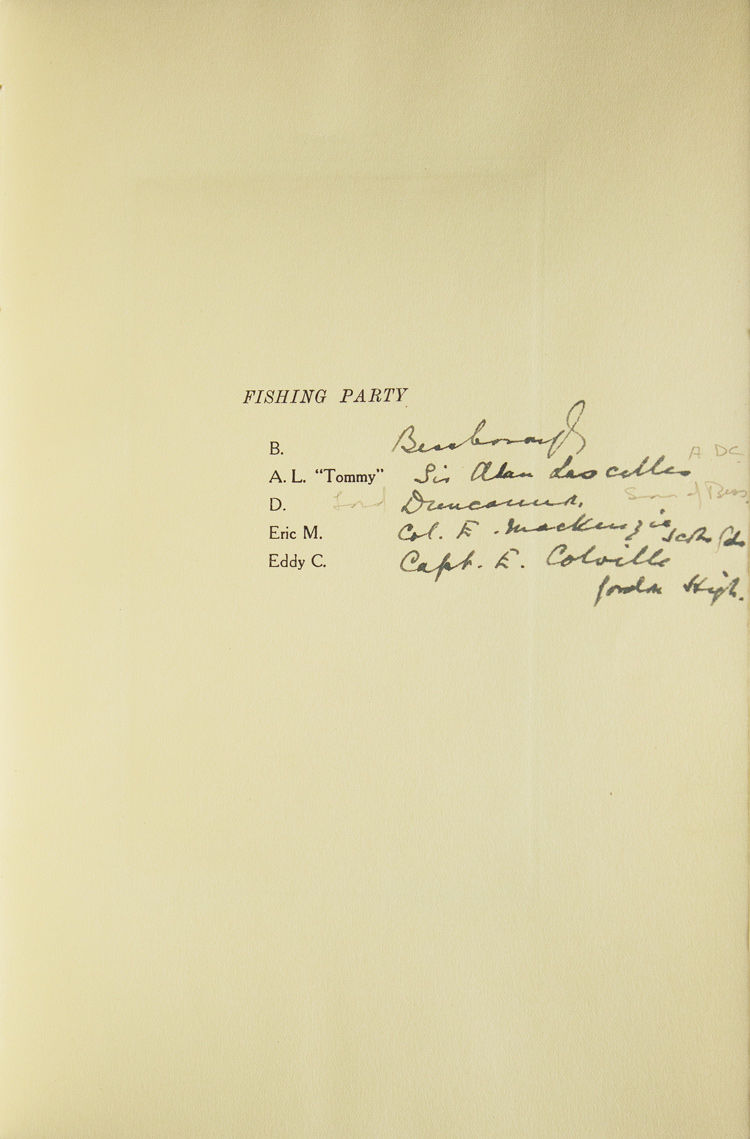 FISHING PARTY
B. Bessborough
A. L. "Tommy" Sir Alan Lascelles A D C
D. Lord Duncannon. Son of Bess.
Eric M. Col. E. Mackenzie Scots Gds
Eddy C. Capt. E. Colville
Gordon High.